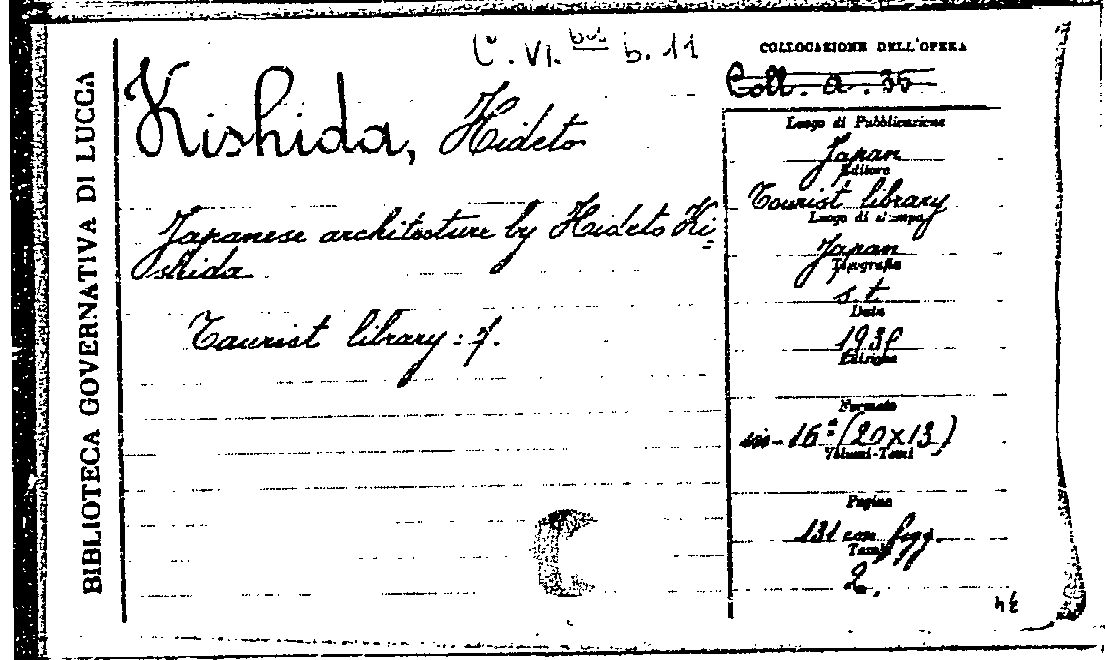 BIBLIOTECA GOVERNATIVA DI LUCCA
C. VI. bis b. 11
Kishida, Hideto
Japanese architecture by Hideto Ki=
shida
Tourist library: 7.
COLLOCAZIONE DELL'OPERA
Coll. a. 35
Luogo di Pubblicazione
Japan
Editore
Tourist library
Luogo di stampa
Japan
Tipografia
s.t.
Data
Edizione
Formato
in-16° (20x13)
Volumi-Tomi
Pagine
131 con figg.
Tavole
2.